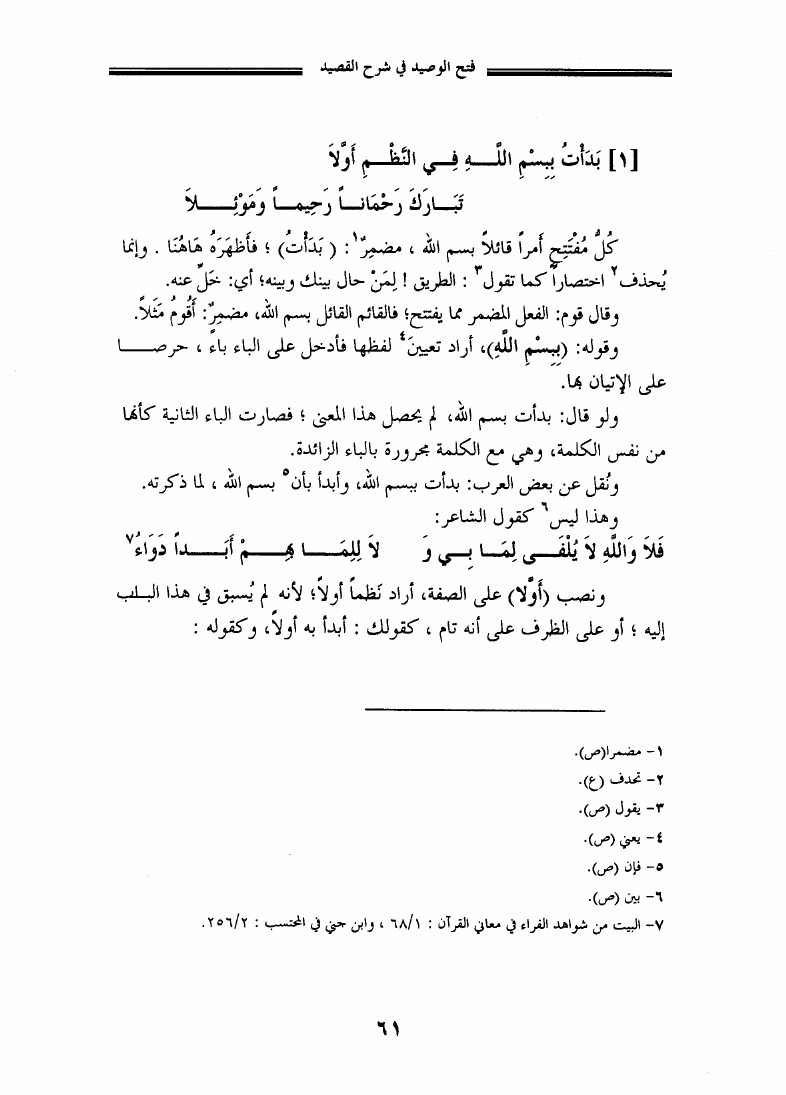 فتح الوصيد في شرح القصيد
[١] بَدَأْتُ بِبِسْمِ اللَّـهِ فِـي النَّظْـمِ أَوَّلاَ
تَبَـارَكَ رَحْمَانـاً رَحِيمـاً وَمَوْئِـلاَ
كُلُّ مُفْتَتِحٍ أمراً قائلاً بسم الله ، مضمِرٌ١ : ( بَدَأتُ) ؛ فأظهَرَهُ هَاهُنَا . وإنما
يُحذف٢ اختصاراً كما تقول٣ : الطريق ! لِمَنْ حال بينك وبينه؛ أي: خَلِّ عنه.
وقال قوم: الفعل المضمر مما يفتتح؛ فالقائم القائل بسم الله، مضمِرٌ: أَقُومُ مَثَلاً.
وقوله: (بِبِسْمِ اللَّهِ)، أراد تعيينَ٤ لفظها فأدخل على الباء باءً ، حرصــا
على الإتيان بها.
ولو قال: بدأت بسم الله، لم يحصل هذا المعنى ؛ فصارت الباء الثانية كأنها
من نفس الكلمة، وهي مع الكلمة مجرورة بالباء الزائدة.
ونُقل عن بعض العرب: بدأت ببسم الله، وأبدأ بأن٥ بسم الله ، لما ذكرته.
وهذا ليس٦ كقول الشاعر:
فَلاَ وَاللَّهِ لاَ يُلْفَـى لِمَـا بِـي وَ لاَ لِلِمَـا بِهِـمْ أَبَـداً دَوَاءُ٧
ونصب (أَوَّلاَ) على الصفة، أراد نَظماً أولاً؛ لأنه لم يُسبق في هذا البـاب
إليه ؛ أو على الظرف على أنه تام ، كقولك : أبدأ به أولاً، وكقوله :
١- مضمرا(ص).
٢- تحذف (ع).
٣- يقول (ص).
٤- يعني (ص).
٥- فإن (ص).
٦- بين (ص).
٧- البيت من شواهد الفراء في معاني القرآن : ٦٨/١ ، وابن جني في المحتسب : ٢٥٦/٢.
٦١